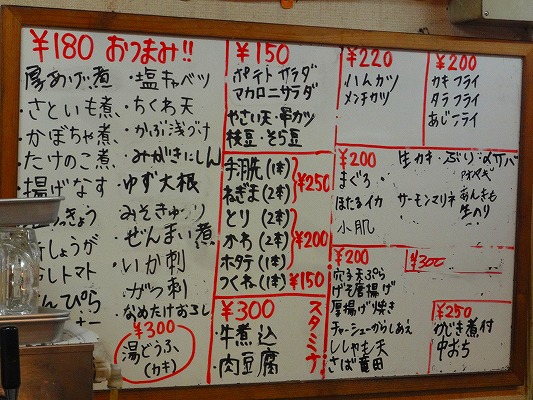 ¥180 おつまみ!!
厚あげ煮
さといも煮
かぼちゃ煮
たけのこ煮
揚げなす
しょうが
トマト
・塩キャベツ
・ちくわ天
・かぶ浅づけ
・みがきにしん
・ゆず大根
みそきゅうり
ぜんまい煮
・いか刺
・がつ刺
・なめたけおろし
¥300
湯どうふ
(カキ)
¥150
ポテトサラダ
マカロニサラダ
やさい天・串カツ
枝豆・そら豆
手羽先(1本)
ねぎま(2本)
¥250
とり(2本)
かわ(2本)
¥200
ホタテ(1本)
つくね(1本)
¥150
¥300
スタミナ
・牛煮込
・肉豆腐
¥220
ハムカツ
メンチカツ
¥200
カキフライ
タラフライ
あじフライ
¥200
まぐろ
ほたるイカ
小肌
生カキ・ぶり・〆サバ
サーモンマリネ
あんきも
¥200
穴子天ぷら
げそ唐揚げ
厚揚げ焼き
チャーシューからしあえ
ししゃも天
さば竜田
¥300
¥250
かじき煮付
中おち